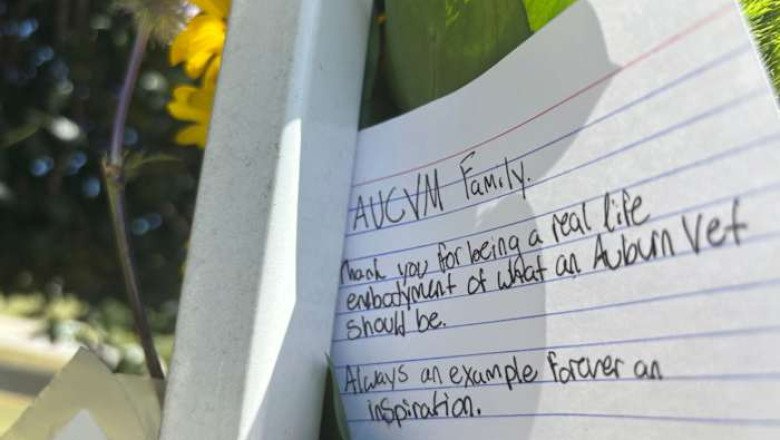 AUCVM Family.
Thank you for being a real life
embodyment of what an Auburn Vet
should be.
Always an example forever an
inspiration.